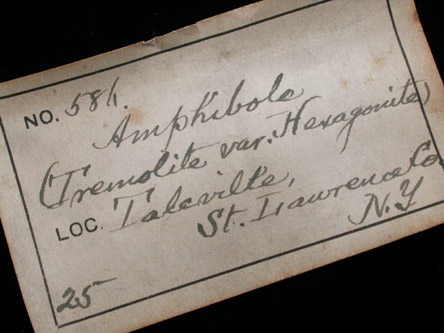 NO. 584.
Amphibole
(Tremolite var. Hexagonite)
LOC. Talcville,
St. Lawrence Co.
N.Y
25